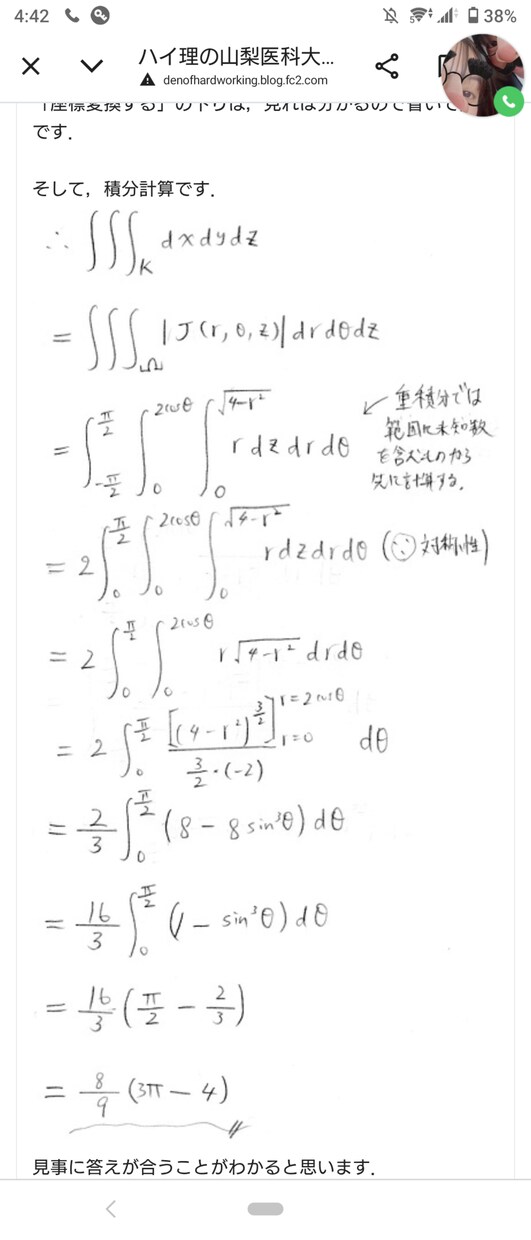 4:42
5
38%
ハイ理の山梨医科大...
denofhardworking.blog.fc2.com
です.
そして，積分計算です.
∴ ∭_K dxdydz
= ∭_Ω |J(r,θ,z)| drdθdz
= ∫_{-π/2}^{π/2} ∫_0^{2cosθ} ∫_0^{√(4-r²)} r dz dr dθ
← 重積分では
範囲に未知数
を含むものから
先に計算する.
= 2∫_0^{π/2} ∫_0^{2cosθ} ∫_0^{√(4-r²)} rdzdrdθ (∵ 対称性)
= 2∫_0^{π/2} ∫_0^{2cosθ} r√(4-r²) drdθ
= 2∫_0^{π/2} [(4-r²)^{3/2}]_{r=0}^{r=2cosθ} / (3/2・(-2)) dθ
= 2/3 ∫_0^{π/2} (8 - 8sin³θ) dθ
= 16/3 ∫_0^{π/2} (1 - sin³θ) dθ
= 16/3 (π/2 - 2/3)
= 8/9 (3π - 4)
見事に答えが合うことがわかると思います.